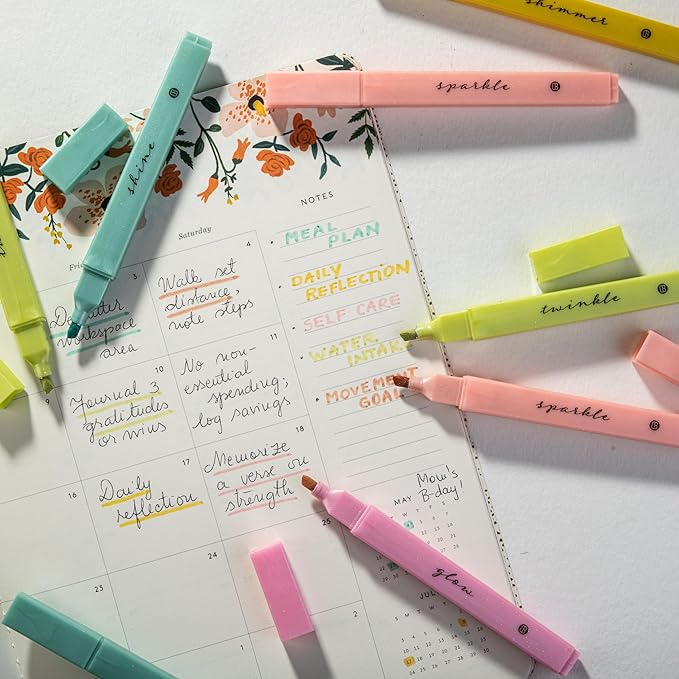 shimmer
sparkle
shine
NOTES
Saturday
3
4
Walk set
distance,
note steps
MEAL
PLAN
DAILY
REFLECTION
SELF CARE
WATER
INTAKE
MOVEMENT
GOAL
Declutter
workspace
area
twinkle
9
10
11
Journal 3
gratitudes
or wins
No non-
essential
spending;
log savings
sparkle
16
17
18
Daily
reflection
Memorize
a verse on
strength
Mom's
B-day!
MAY
glow
23
24
25
1
2